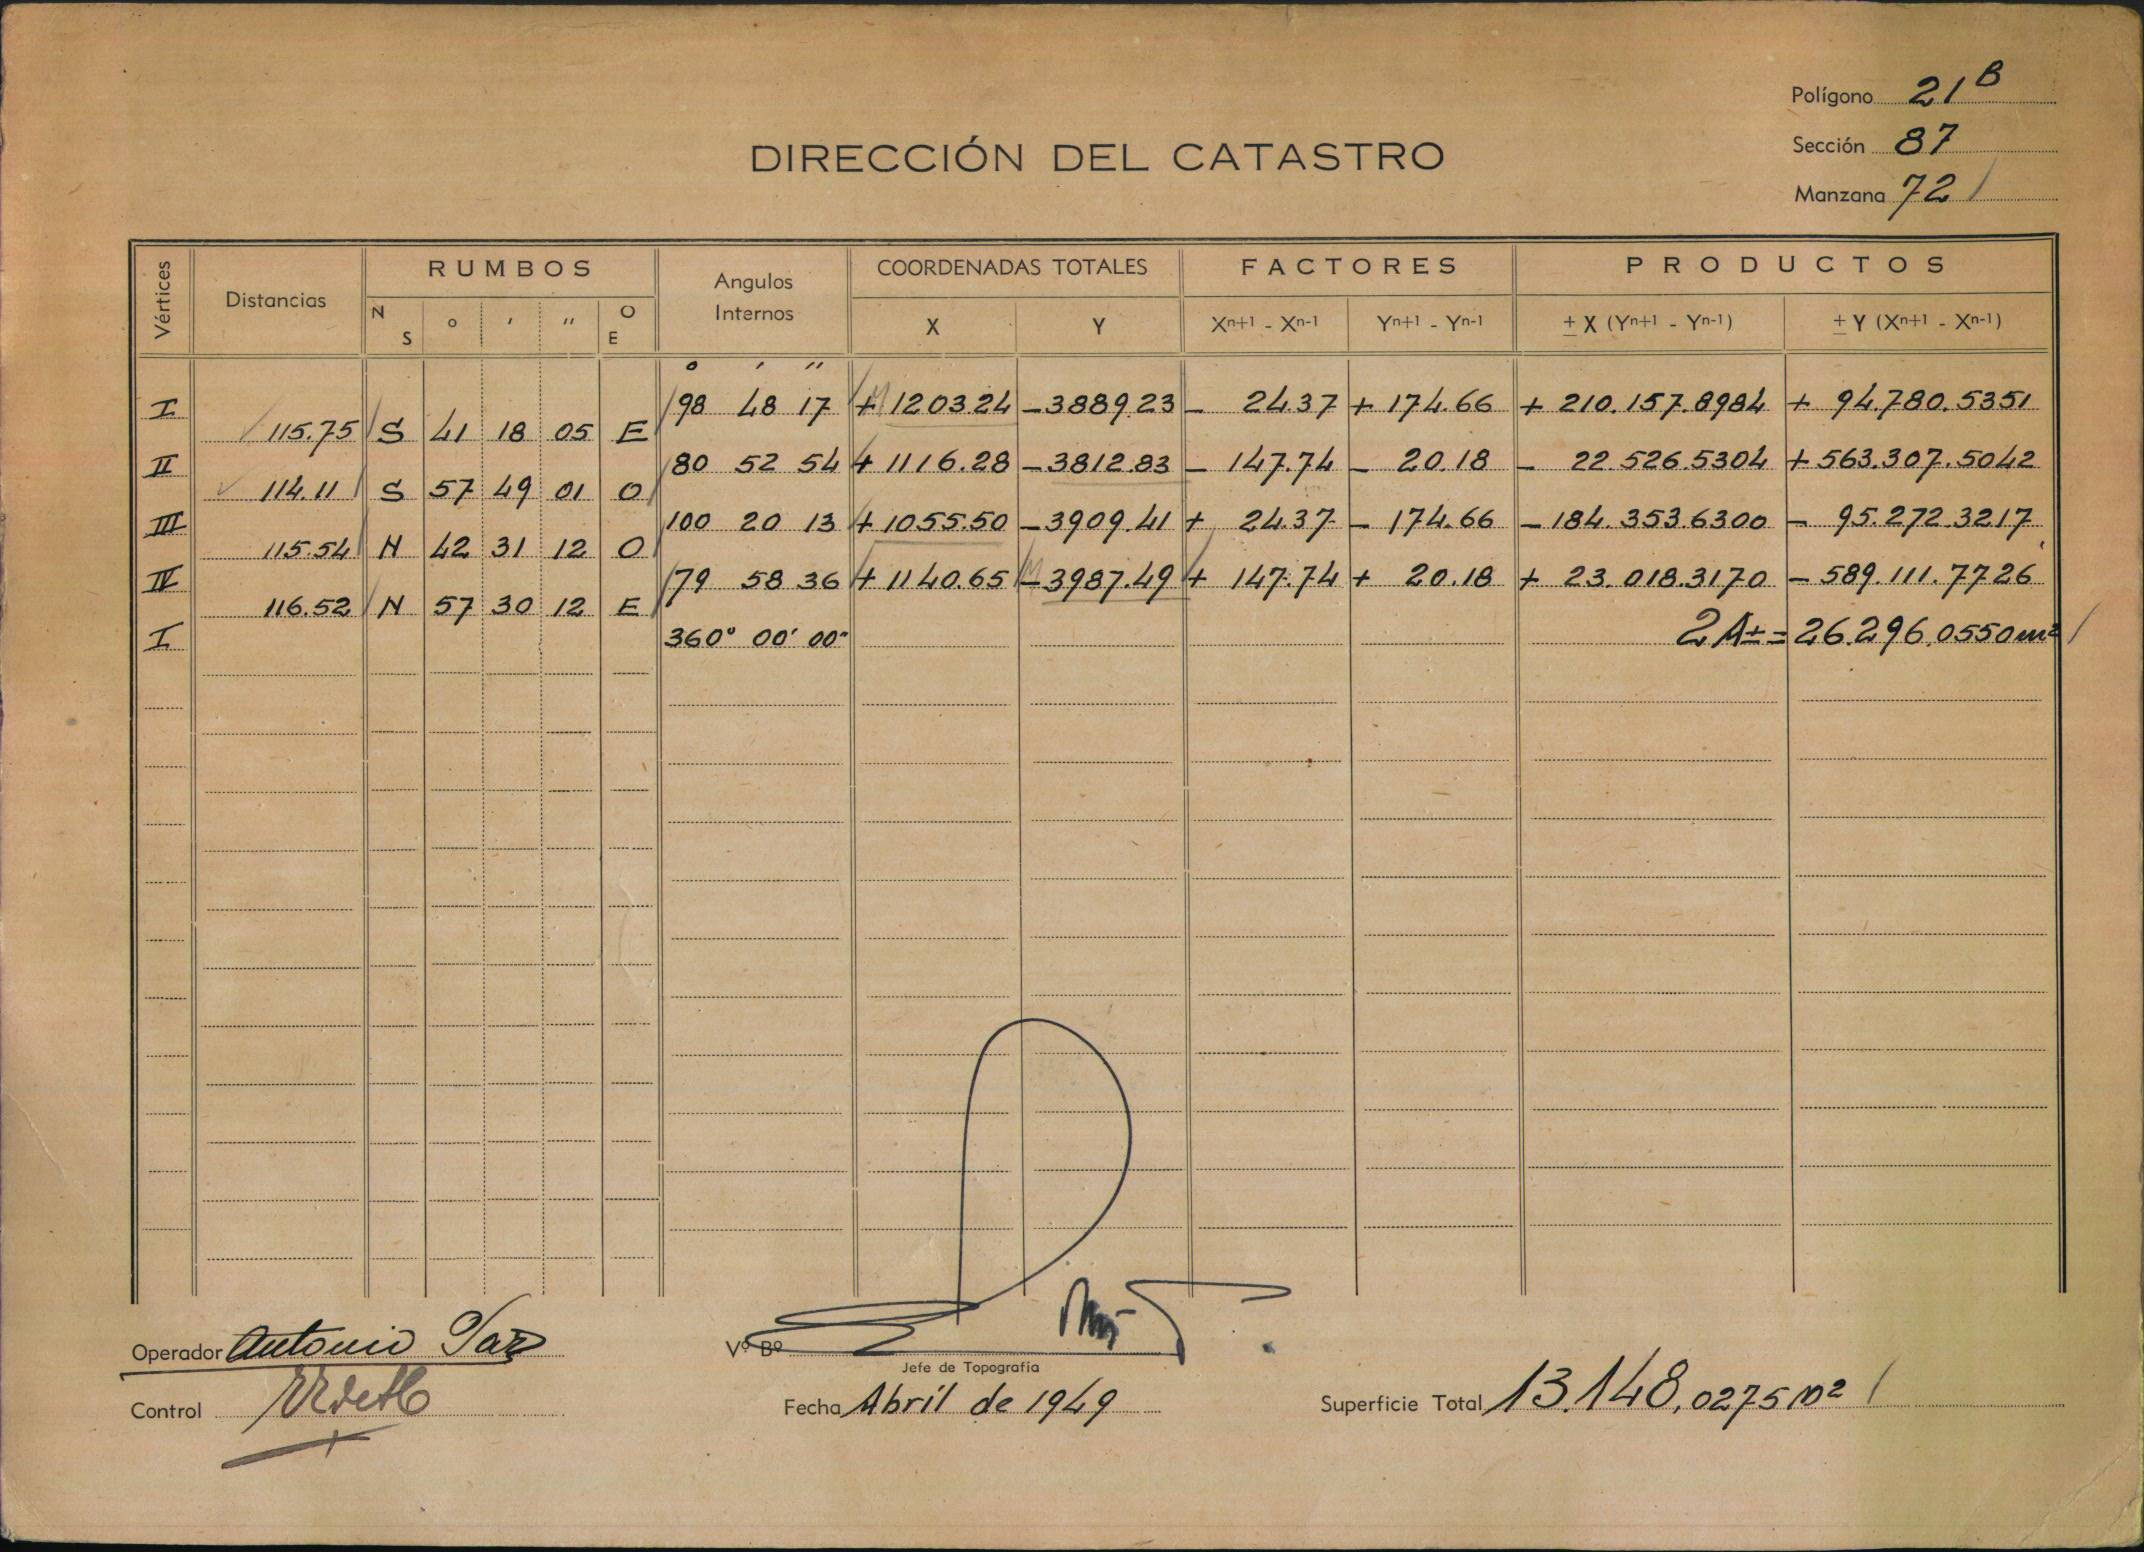 Polígono 21 B
Sección 87
Manzana 72
DIRECCIÓN DEL CATASTRO
Vértices Distancias RUMBOS Angulos Internos COORDENADAS TOTALES FACTORES PRODUCTOS
N S ° ' " O E X Y Xn+1 - Xn-1 Yn+1 - Yn-1 ± X (Yn+1 - Yn-1) ± Y (Xn+1 - Xn-1)
° ' "
I 98 48 17 + 1203.24 - 3889.23 - 24.37 + 174.66 + 210.157.8984 + 94.780.5351
115.75 S 41 18 05 E
II 80 52 54 + 1116.28 - 3812.83 - 147.74 - 20.18 - 22.526.5304 + 563.307.5042
114.11 S 57 49 01 O
III 100 20 13 + 1055.50 - 3909.41 + 24.37 - 174.66 - 184.353.6300 - 95.272.3217
115.54 N 42 31 12 O
IV 79 58 36 + 1140.65 - 3987.49 + 147.74 + 20.18 + 23.018.3170 - 589.111.7726
116.52 N 57 30 12 E
I 360° 00' 00" 2A± = 26.296.0550 m²
Operador Antonio Paz
Vº Bº
Jefe de Topografía
Control
Fecha Abril de 1949
Superficie Total 13.148,0275 m²